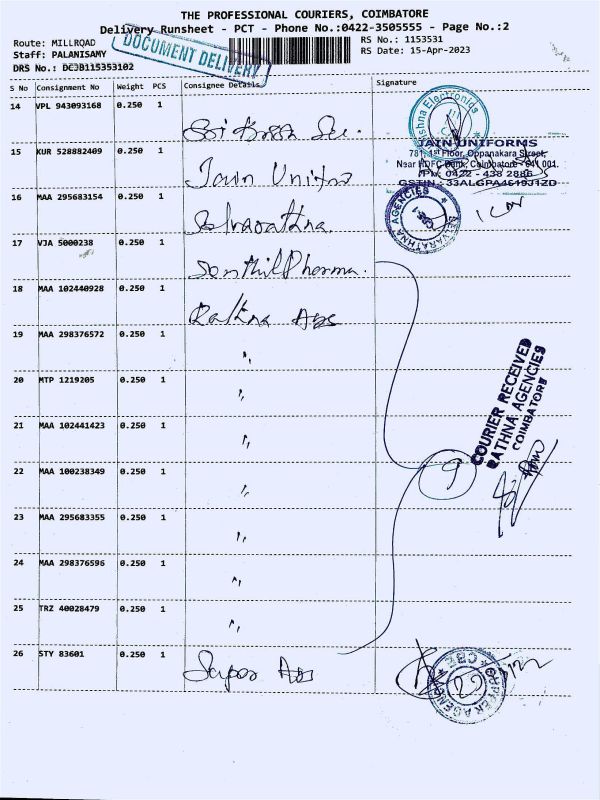 THE PROFESSIONAL COURIERS, COIMBATORE
Delivery Runsheet - PCT - Phone No.:0422-3505555 - Page No.:2
Route: MILLROAD
RS No.: 1153531
Staff: PALANISAMY
RS Date: 15-Apr-2023
DRS No.: DC3B115353102
DOCUMENT DELIVERY
S No Consignment No Weight PCS Consignee Details Signature
14 VPL 943093168 0.250 1
Krishna Electronics
15 KUR 528882409 0.250 1 Jain Unifro
JAIN UNIFORMS
781, 1st Floor, Oppanakara Street,
Near HDFC Bank, Coimbatore - 641 001.
Ph: 0422 - 438 2886
GSTIN : 33ALGPA4619J1ZD
16 MAA 295683154 0.250 1 Selvarathna
SELVARATHNA AGENCIES
17 VJA 5000238 0.250 1 Senthil Pharma.
18 MAA 102440928 0.250 1 Rathna Ags
19 MAA 298376572 0.250 1 "
20 MTP 1219205 0.250 1 "
21 MAA 102441423 0.250 1 "
22 MAA 100238349 0.250 1 "
23 MAA 295683355 0.250 1 "
24 MAA 298376596 0.250 1 "
25 TRZ 40028479 0.250 1 "
9
COURIER RECEIVED
RATHNA AGENCIES
COIMBATORE
26 STY 83601 0.250 1 Super Ags
CBE